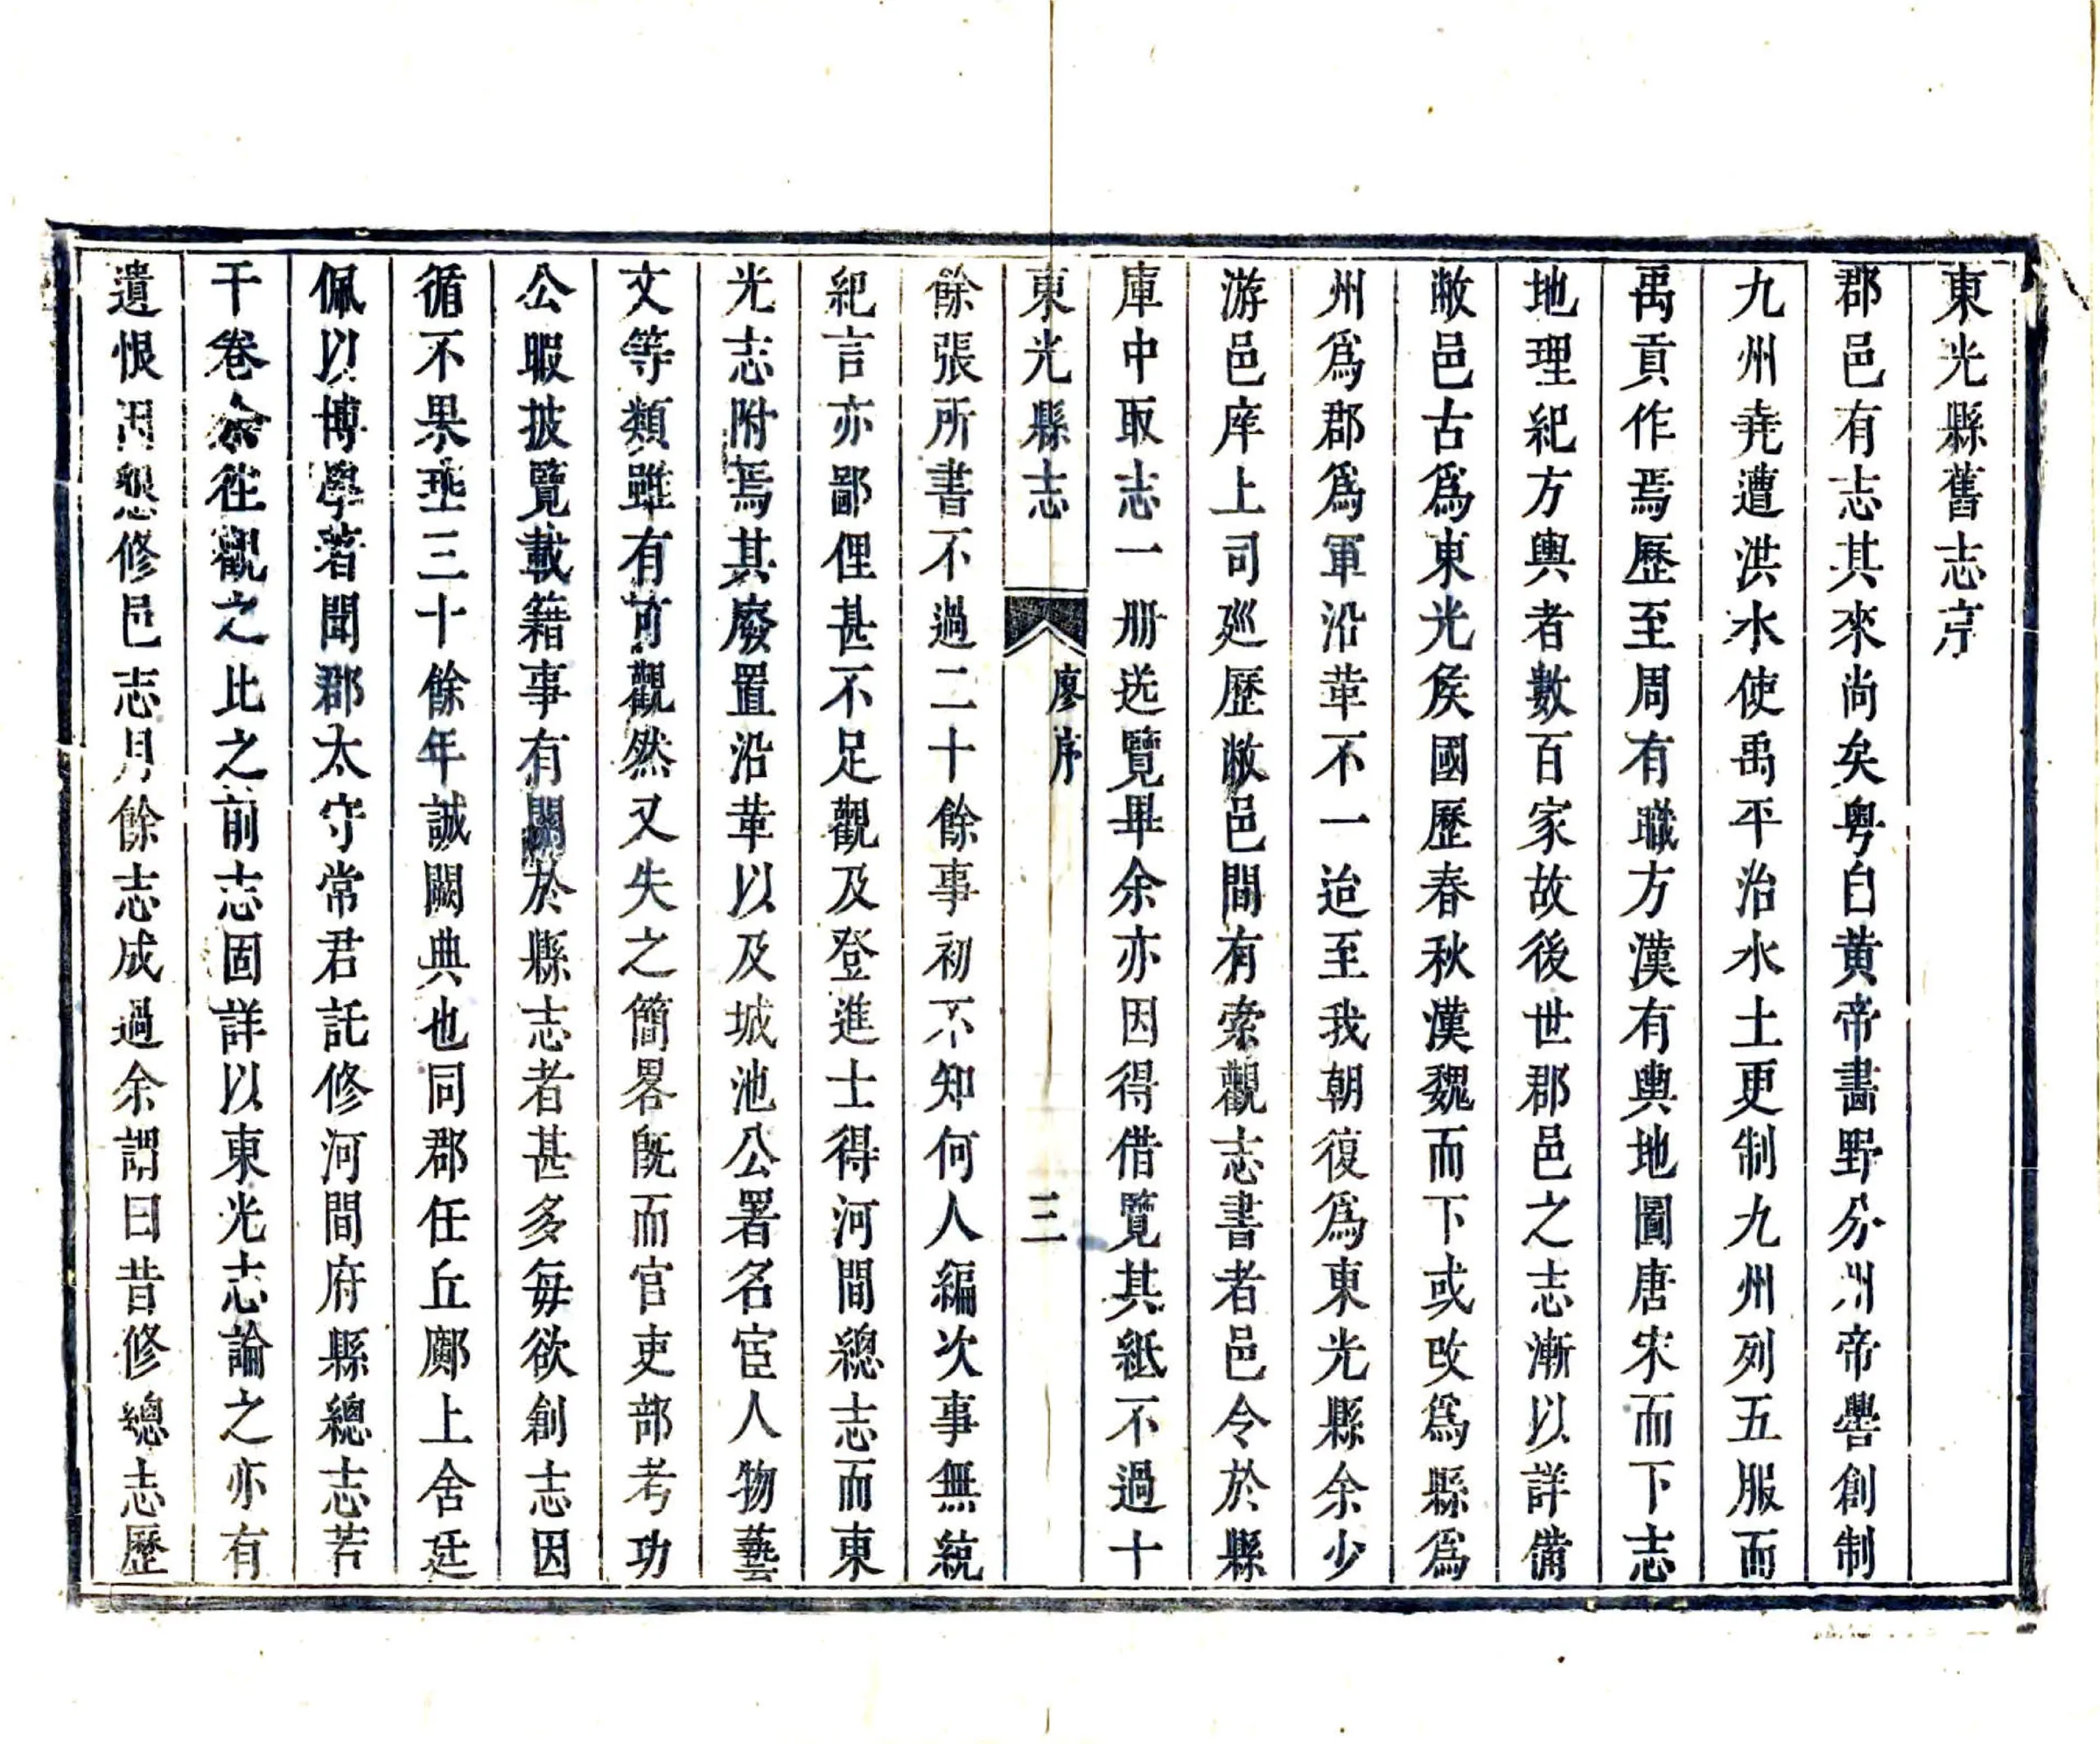 東光縣舊志序
郡邑有志其來尚矣粤自黄帝畵野分州帝嚳創制
九州堯遭洪水使禹平治水土更制九州列五服而
禹貢作焉歷至周有職方漢有輿地圖唐宋而下志
地理紀方輿者數百家故後世郡邑之志漸以詳備
敝邑古爲東光矦國歷春秋漢魏而下或改爲縣爲
州爲郡爲軍沿革不一迨至我朝復爲東光縣余少
游邑庠上司廵歷敝邑間有索觀志書者邑令於縣
庫中取志一册送覽畢余亦因得借覽其紙不過十
東光縣志 廖序 三
餘張所書不過二十餘事初不知何人編次事無統
紀言亦鄙俚甚不足觀及登進士得河間總志而東
光志附焉其廢置沿革以及城池公署名宦人物藝
文等類雖有可觀然又失之簡畧旣而官吏部考功
公暇披覽載籍事有關於縣志者甚多每欲創志因
循不果垂三十餘年誠闕典也同郡任丘鄺上舍廷
佩以博學著聞郡太守常君託修河間府縣總志若
干卷余徃觀之比之前志固詳以東光志論之亦有
遺恨因懇修邑志月餘志成過余謂曰昔修總志歷